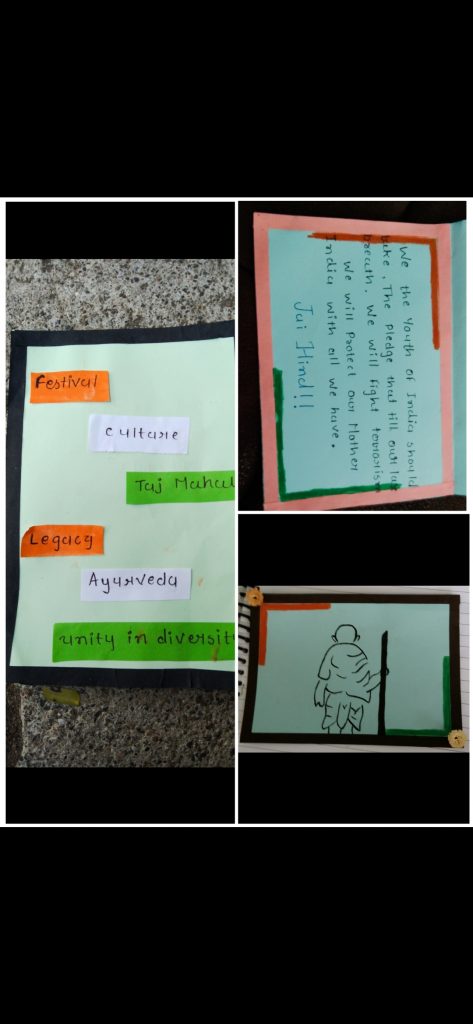 Festival
culture
Taj Mahal
Legacy
Ayurveda
unity in diversit
We the Youth of India should
take. The pledge that till our las
breath. We will fight terrorism
We will Protect our Mother
India with all we have.
Jai Hind!!